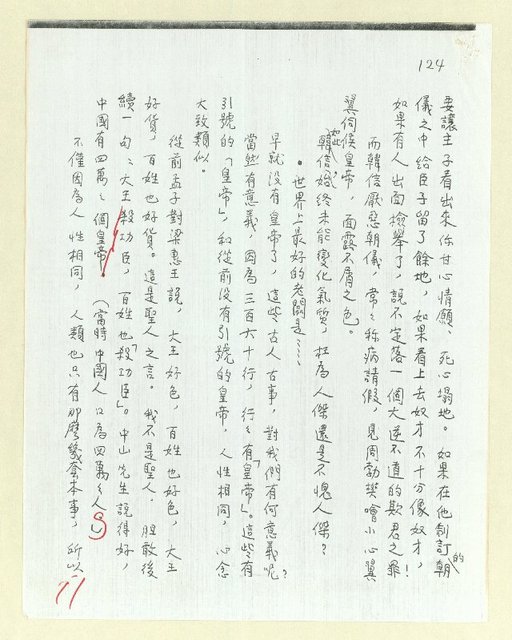 124
要讓主子看出來你甘心情願、死心塌地。如果在他制訂的朝
儀之中給臣子留了餘地，如果看上去奴才不十分像奴才，
如果有人出面檢舉了，說不定落一個大逆不道的欺君之罪！
而韓信厭惡朝儀，常常稱病請假，見周勃樊噲小心翼
翼伺候皇帝，面露不屑之色。
如此，韓信始終未能變化氣質，枉為人傑還是不愧人傑？
•世界上最好的老闆是……
早就沒有皇帝了，這些古人古事，對我們有何意義呢？
當然有意義，因為三百六十行，行行有「皇帝」。這些有
引號的「皇帝」，和從前沒有引號的皇帝，人性相同，心念
大致類似。
從前孟子對梁惠王說，大王好色，百姓也好色，大王
好貨，百姓也好貨。這是聖人之言。我不是聖人，胆敢後
續一句：大王殺功臣，百姓也「殺功臣」。中山先生說得好，
中國有四萬萬個皇帝。（當時中國人口為四萬萬人。）
不僅因為人性相同，人類也只有那麼幾套本事，所以